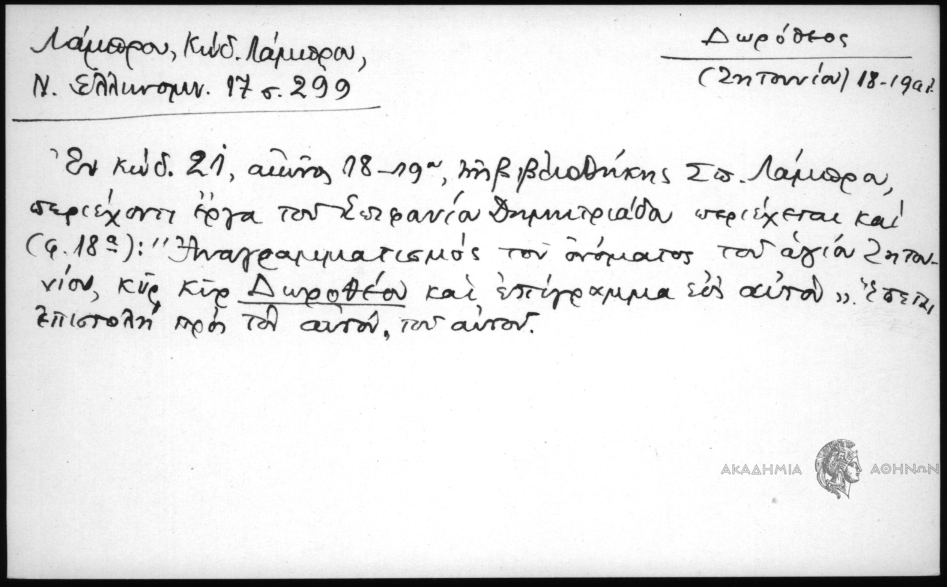 Λάμπρου, Κώδ. Λάμπρου,
Ν. Ἑλληνομν. 17 σ. 299
Δωρόθεος
(Ζητουνίου) 18-19 αἰ.
Ἐν κώδ. 21, αἰῶνος 18-19ου, τῆς βιβλιοθήκης Σπ. Λάμπρου,
περιέχοντι ἔργα τοῦ Ἐπιφανίου Δημητριάδου περιέχεται καὶ
(φ. 18α): "Ἀναγραμματισμὸς τοῦ ὀνόματος τοῦ ἁγίου Ζητου-
νίου, κῦρ κῦρ Δωροθέου καὶ ἐπίγραμμα εἰς αὐτὸν". Ἕπεται
ἐπιστολὴ πρὸς τὸν αὐτόν, τοῦ αὐτοῦ.
ΑΚΑΔΗΜΙΑ ΑΘΗΝΩΝ